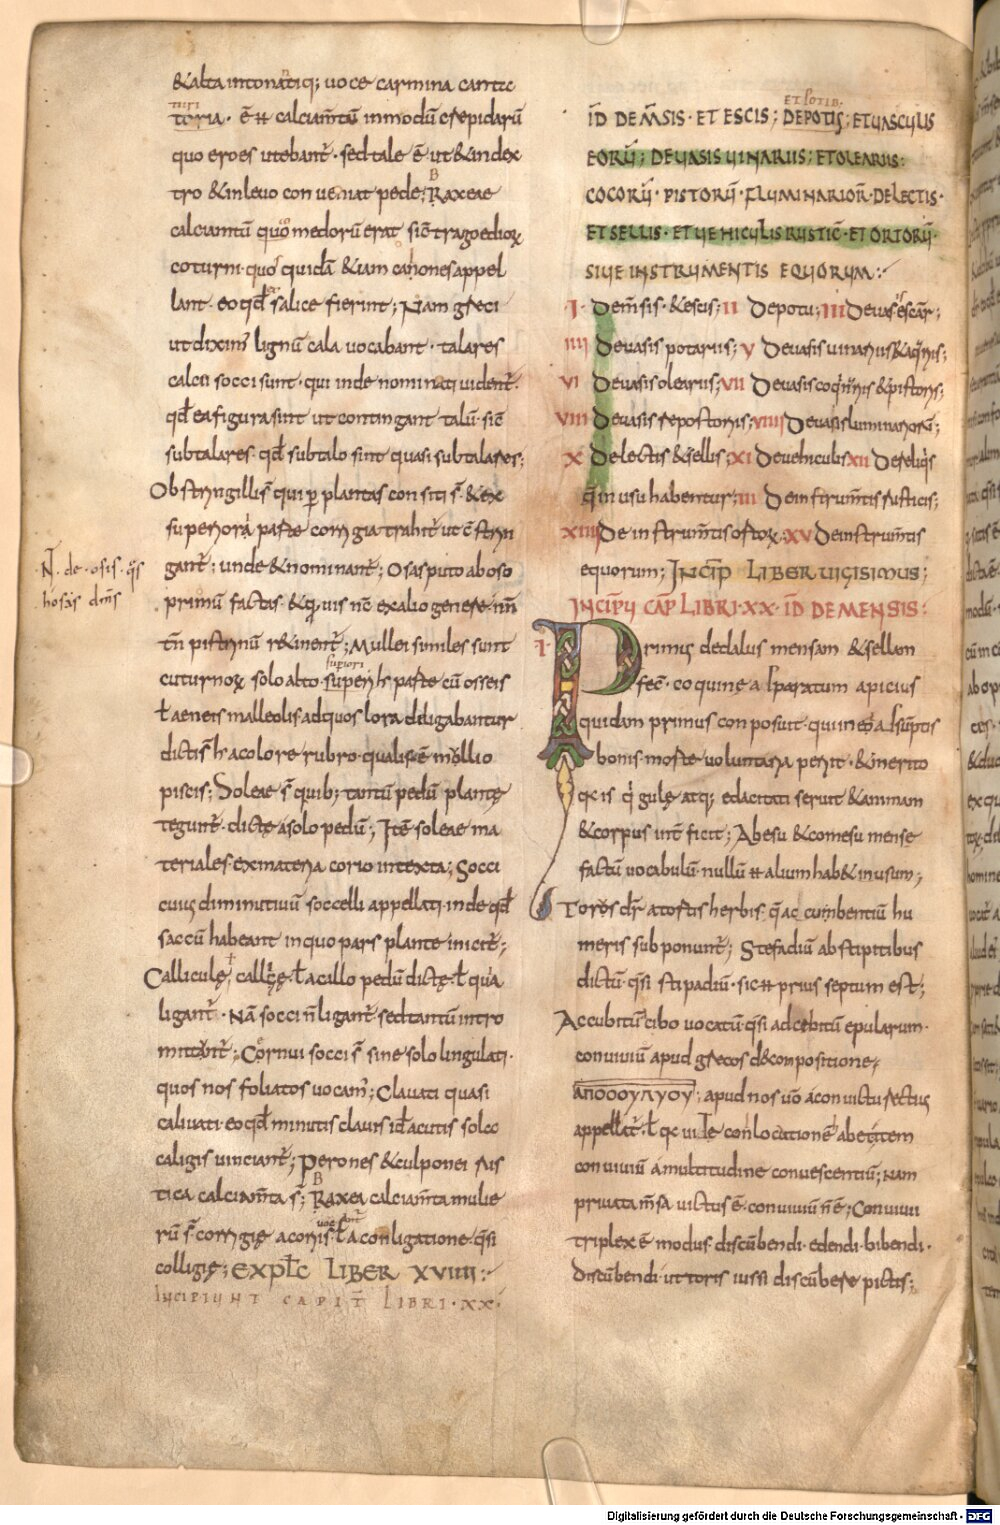 &alta intonatiq; voce carmina cante
niri
toria · ē ħ calciam̄tū inmodū crepidarū
quo eroes utebant̄ · sed tale ē ut &index
tro &inlevo conveniat pede; Baxeae
calciamtū quomedorū erat sic̄ tragoediorꝝ
coturni · quod quidā &iam canones appel
lant · eo qd̄ salice fierint; Nam greci
ut dixim̄ lignū cala vocabant · talares
calcei socci sunt · qui inde nominati vident̄
qd̄ ea figura sint ut contingant talū · sic̄
subtalares · qd̄ subtalo sint quasi subtalares;
Obstringillis̄ qui ꝑ plantas consiti s̄ · &ex
superiora parte corrigia trahit̄ ut c̄strin
gant̄; unde &nominant̄; Osas puto ab oso
N̄ · de · osis · q̄s
hosas dm̄s
primū factas · &q̄uis nc̄ ex alio genere nn̄
tn̄ pristinū r&inent̄; Mullei similes sunt
superiori
cuturnoꝝ solo alto · superi h parte cū osseis
ł aeneis malleolis adquos lora diligabantur
dicti s̄ h acolore rubro · qualis ē mollio
piscis; Soleae s̄ quib; tantū pedū plantę
tegunt̄ · dictę asolo pedū; Itē soleae ma
teriales · exmateria corio intexta; Socci
cuius diminutivū soccelli appellati · inde qd̄
saccū habeant inquo pars plante inicit̄;
Calliculę; callęę · ł acillo pedū dictę · ł quia
ligant̄ · Nā socci n̄ ligant̄ sed tantū intro
mittunt̄; Cornui socci s̄ sine solo lingulati ·
quos nos foliatos vocam̄; Clavati quasi
calivati · eo qd̄ minutis clavis id̄ acutis soleo
caligis vinciant̄; Perones &culponei rus
tica calciam̄ta s̄; Baxea calciam̄ta mulie
rū s̄ corrigię acoriis · ł a conligatione · q̄si
colligię; EXPLC̄ LIBER XVIIII:·
INCIPIUNT CAPIT̄ LIBRI · XX·
ID̄ DE MENSIS · ET ESCIS; DE POTIS; ET VASCULIS
ET POTIB·
EORŪ; DE VASIS VINARIIS; ET OLEARIIS:
COCORŪ · PISTORŪ · FLUMINARIOR̄ · DE LECTIS·
ET SELLIS · ET VEHICULIS RUSTIC̄ · ET ORTORŪ·
SIVE INSTRUMENTIS EQUORUM:·
I· Dem̄sis · &escis; II Depotu; III Devas̄ escar̄;
IIII Devasis potariis; V Devasis vinariis &aq̄riis;
VI Devasis oleariis; VII Devasis coq̄nriis &pistoriis;
VIII Devasis repostoriis; VIIII Devasis luminariorū;
X Delectis &sellis; XI Devehiculis XII De reliq̄is
q̄ in usu habentur; III De instrum̄tis rusticis;
XIIII De instrum̄tis ortoꝝ; XV De instrum̄tis
equorum; INCIP̄ LIBER VIGISIMUS;
INCIPIŪ CAP̄ LIBRI · XX · ID̄ DE MENSIS:
I· Primus dedalus mensam &sellam
fec̄ · coquine apparatum apicius
quidam primus composuit · qui in eo absūptis
bonis · morte voluntaria periit · &merito
q̄ is q̄ gulę atq; edacitati servit &animam
&corpus int̄ficit; Abesu &comesu mense
factū vocabulū · nullū ħ alium hab& in usum;
Toros dr̄ atortis herbis · q̄ accumbentiū hu
meris subponunt̄; Stefadiū abstipitibus
dictū · q̄si stipadiū · sic ħ prius septum est;
Accubitū cibo vocatū · q̄si adcebitū epularum ·
convivium apud grecos d&compositione;
ΑΠΟΟΟΥΛΥΟΥ; apud nos vō aconvictu rectius
appellat̄ · ł q̄ vitę conlocationē habet; item
convivium amultitudine convescentiū; nam
privata m̄sa victus ē · convivium n̄ ē; Convivii
triplex ē modus · discūbendi · edendi · bibendi ·
Discūbendi · ut toris iussi discūbere pictis;
Digitalisierung gefördert durch die Deutsche Forschungsgemeinschaft - DFG